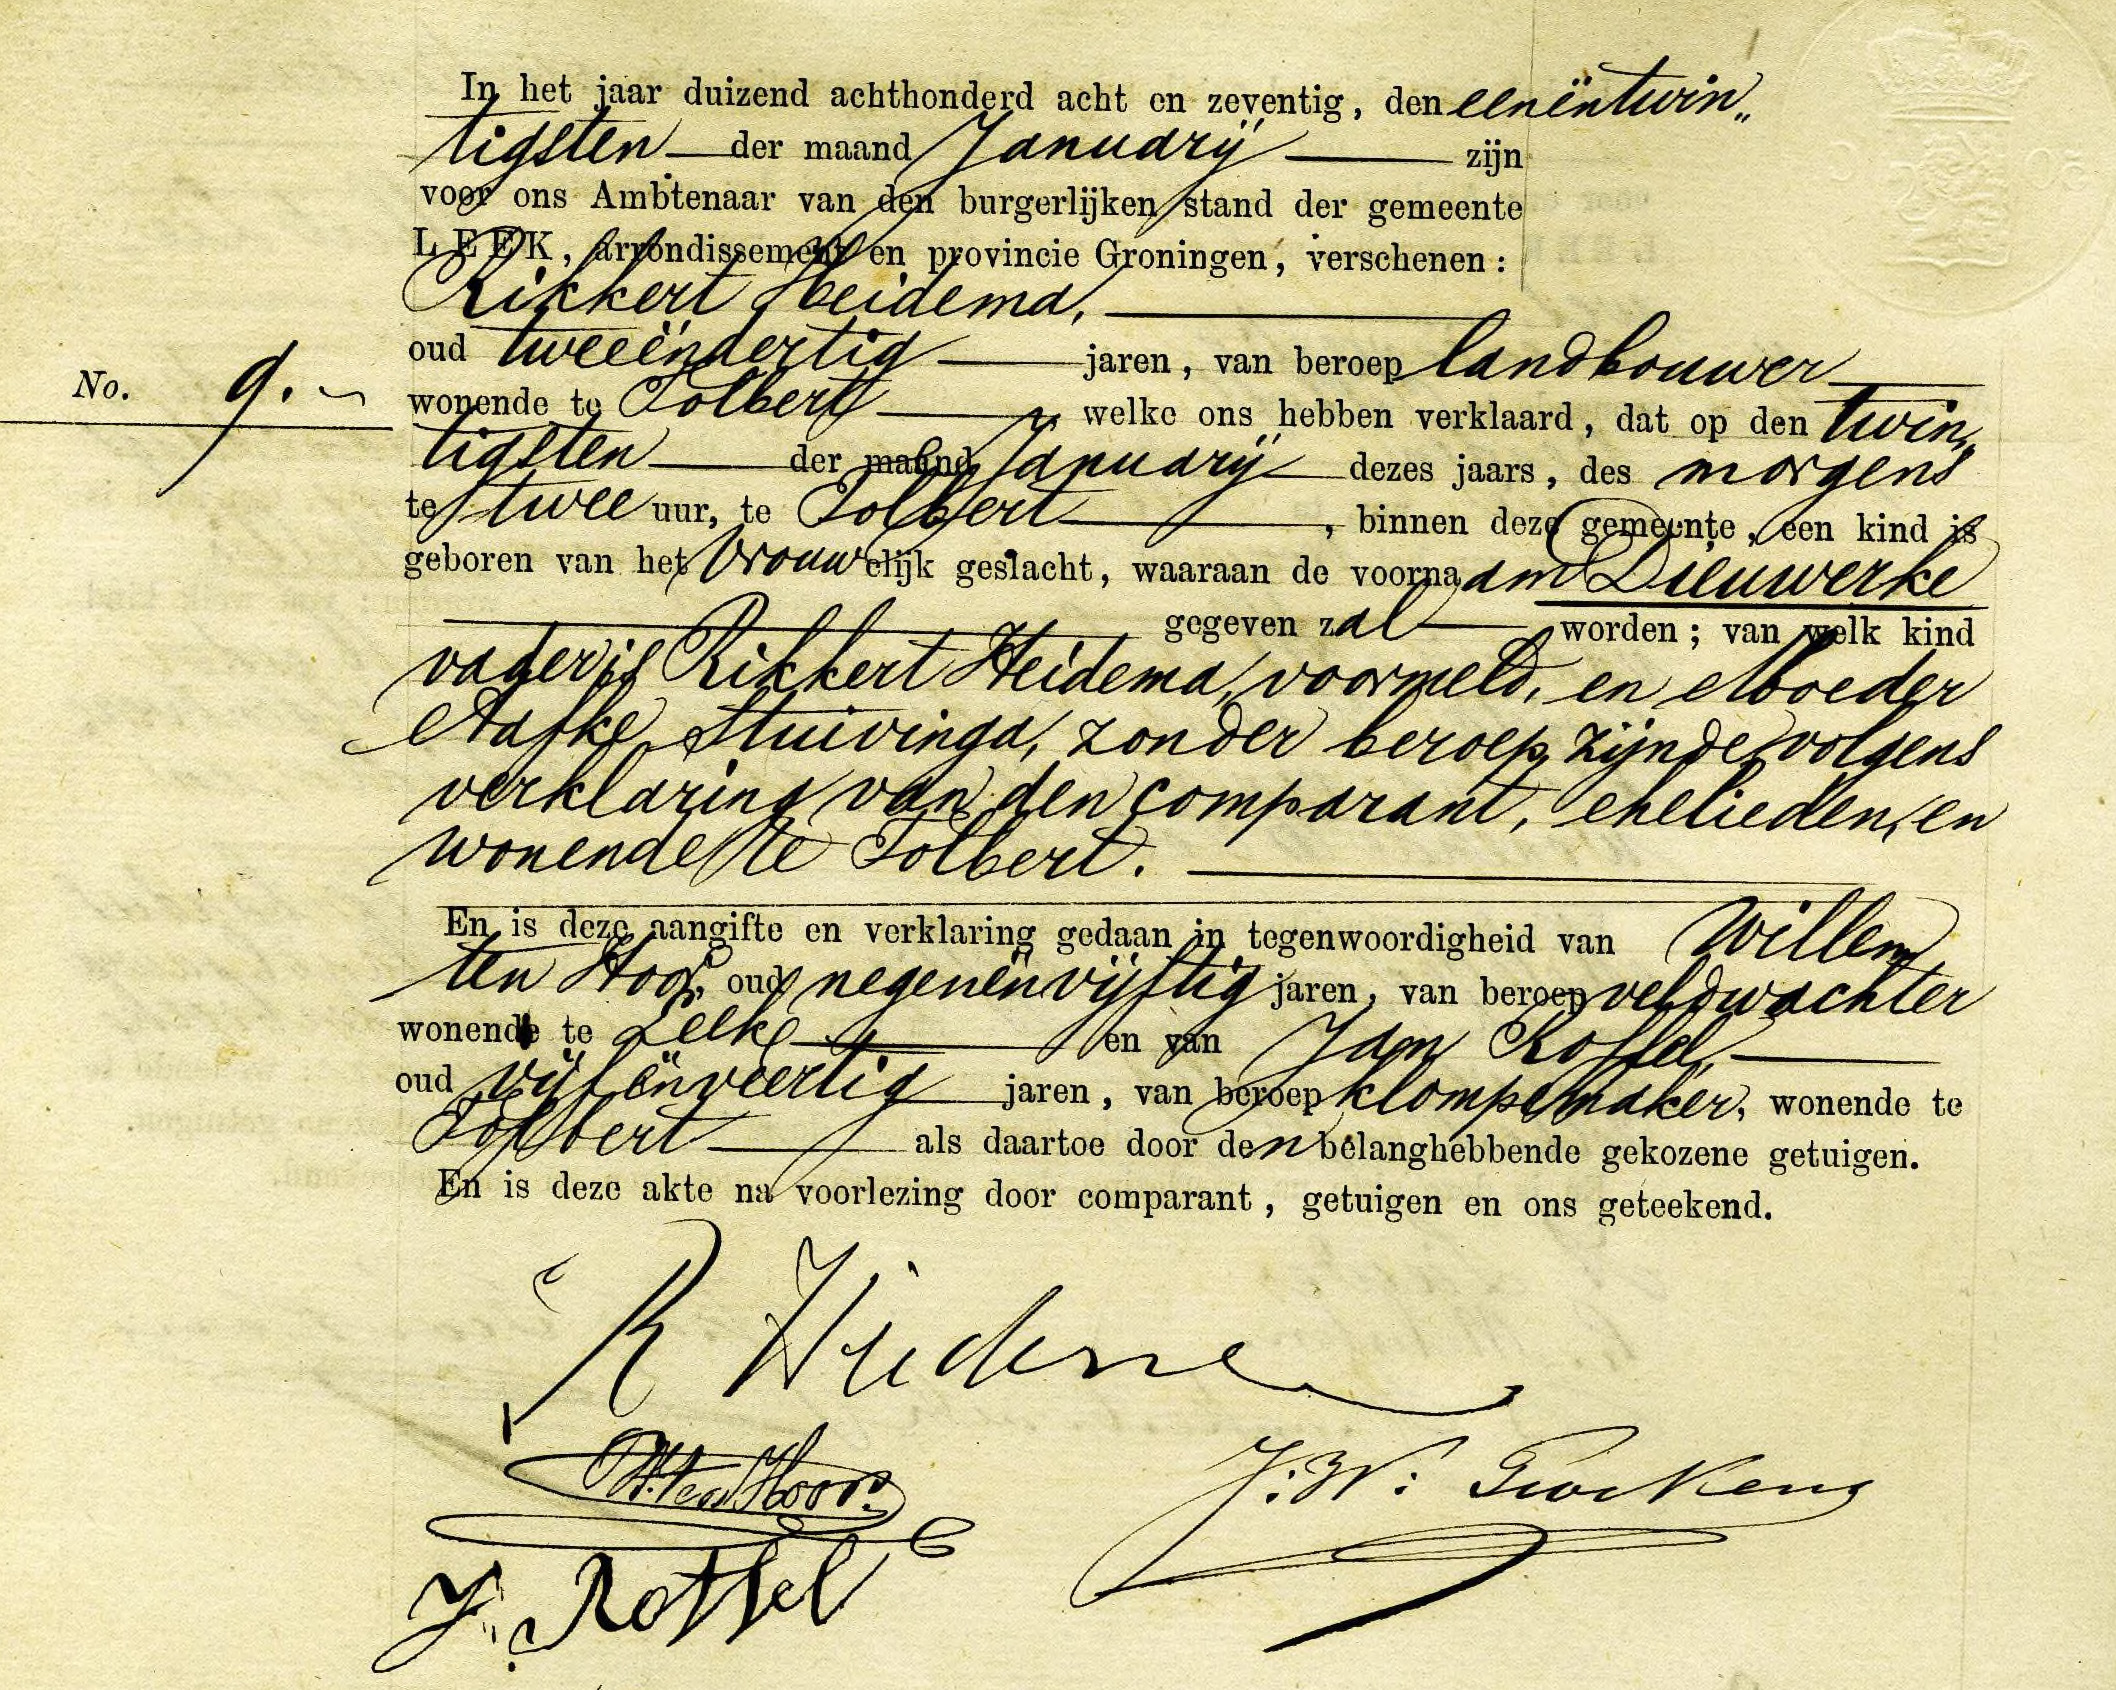 In het jaar duizend achthonderd acht en zeventig, den eenëntwin„
tigsten der maand Januarij zijn
voor ons Ambtenaar van den burgerlijken stand der gemeente
LEEK, arrondissement en provincie Groningen, verschenen:
Rikkert Heidema,
oud tweeëndertig jaren, van beroep landbouwer
No. 9.
wonende te Tolbert, welke ons hebben verklaard, dat op den twin„
tigsten der maand Januarij dezes jaars, des morgens
te twee uur, te Tolbert, binnen deze gemeente, een kind is
geboren van het vrouwelijk geslacht, waaraan de voornaam Dieuwerke
gegeven zal worden; van welk kind
vader is Rikkert Heidema, voormeld, en Moeder
Aafke Stuivinga, zonder beroep, zijnde volgens
verklaring van den comparant, ehelieden, en
wonende te Tolbert.
En is deze aangifte en verklaring gedaan in tegenwoordigheid van Willem
ten Hoor, oud negenenvijftig jaren, van beroep veldwachter
wonende te Leek en van Jan Rossel,
oud vijfënveertig jaren, van beroep klompemaker, wonende te
Tolbert als daartoe door den belanghebbende gekozene getuigen.
En is deze akte na voorlezing door comparant, getuigen en ons geteekend.
R Heidema
W. ten Hoor
J. Rossel